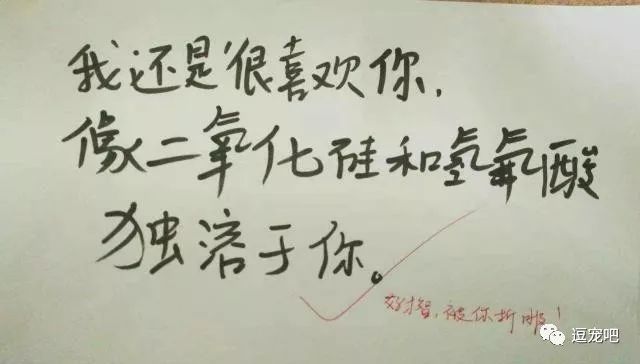 我还是很喜欢你，
像二氧化硅和氢氟酸
独溶于你。
被你折服！
逗宠吧